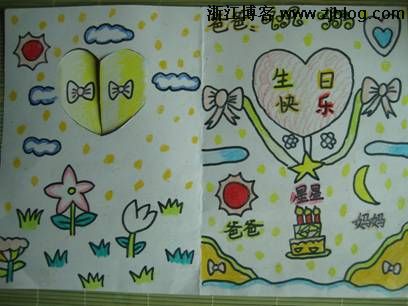 浙江博客 www.zjblog.com
爸爸：
生日
快乐
星星
爸爸
妈妈